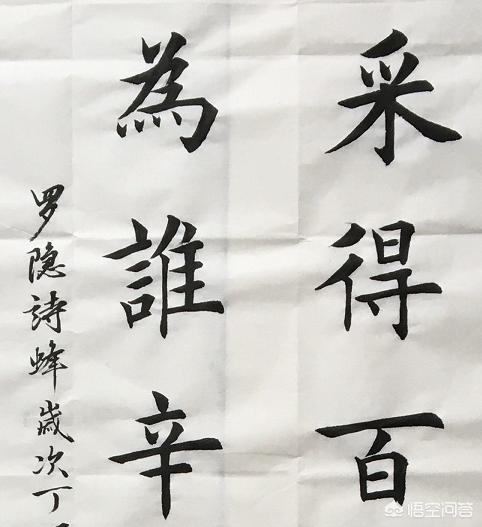 采得百
為誰辛
罗隐詩蜂歲次丁
悟空问答